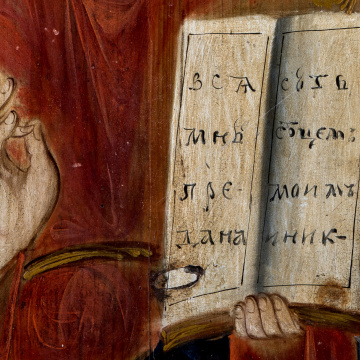 ВСѦ
МНѢ
ПРЕ-
ДАНА
СꙋТЬ
ОЦ҃ЕМЪ
МОИМЪ
ИНИК-